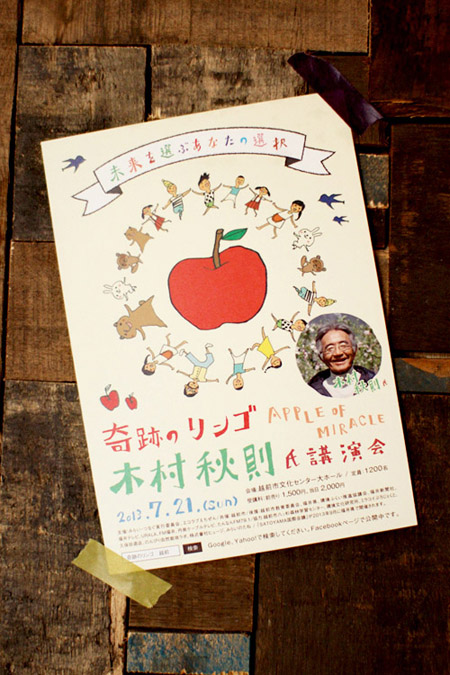 未来を選ぶあなたの選択
木村秋則氏
奇跡のリンゴ APPLE OF MIRACLE
木村秋則氏講演会
2013.7.21.(sun)
会場:越前市文化センター大ホール / 定員:1200名
受講料:前売り 1,500円、当日 2,000円
奇跡のリンゴ 越前 検索 Google、Yahoo!で検索してください。Facebookページで公開中です。